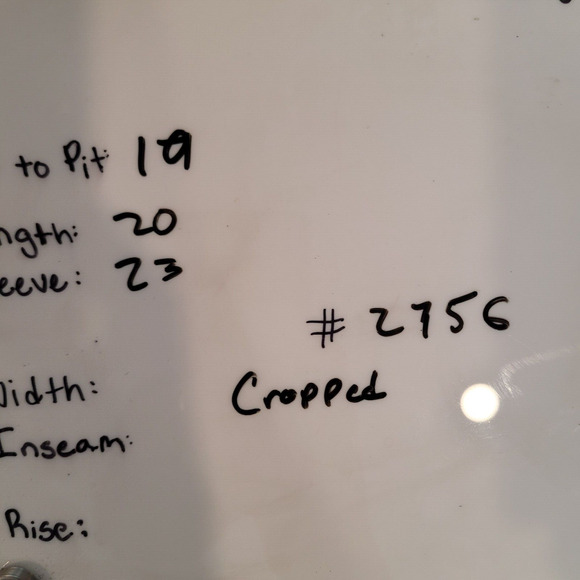 to Pit: 19
ngth: 20
eeve: 23
# 2756
Width:
Cropped
Inseam:
Rise: